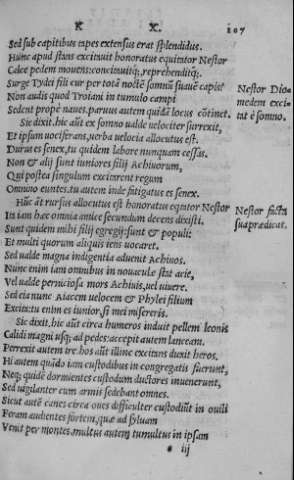 K X. 207
Sed sub capitibus tapes extensus erat splendidus.
Hunc apud stans excinuit honoratus equitator Nestor
Calce pedem mouens: concinuitq́;, reprehenditq́;.
Surge Tydei fili cur per totā noctē somnū suauē capis?
Non audis quod Troiani in tumulo campi
Sedent propè naues. paruus autem quidā locus cōtinet.
Sic dixit. hic aūt ex somno ualde uelociter surrexit,
Et ipsum uociferans, uerba uelocia allocutus est.
Durus es senex, tu quidem labore nunquam cessas.
Non & alij sunt iuniores filij Achiuorum,
Qui postea singulum excitarent regum
Omnino euntes. tu autem inde fatigatus es senex.
Hūc āt rursus allocutus est honoratus equitor Nestor
Ita iam hæc omnia amice secundum decens dixisti.
Sunt quidem mihi filij egregij: sunt & populi:
Et multi quorum aliquis iens uocaret.
Sed ualde magna indigentia aduenit Achiuos.
Nunc enim iam omnibus in nouacule stat acie,
Vel ualde perniciosa mors Achiuis, uel uiuere.
Sed eia nunc Aiacem uelocem & Phylei filium
Excita: tu enim es iunior, si mei misereris.
Sic dixit. hic aūt circa humeros induit pellem leonis
Calidi magni usq́; ad pedes: accepit autem lanceam.
Perrexit autem ire. hos aūt illinc excitans duxit heros.
Hi autem quādo iam custodibus in congregatis fuerunt,
Neq́; quidē dormientes custodum ductores inuenerunt,
Sed uigilanter cum armis sedebant omnes.
Sicut autē canes circa oues difficulter custodiūt in ouili
Feram audientes fortem, quæ ad syluam
Venit per montes. multus autem tumultus in ipsam
* iij
Nestor Dio-
medem exci-
tat è somno.
Nestor facta
sua prædicat.